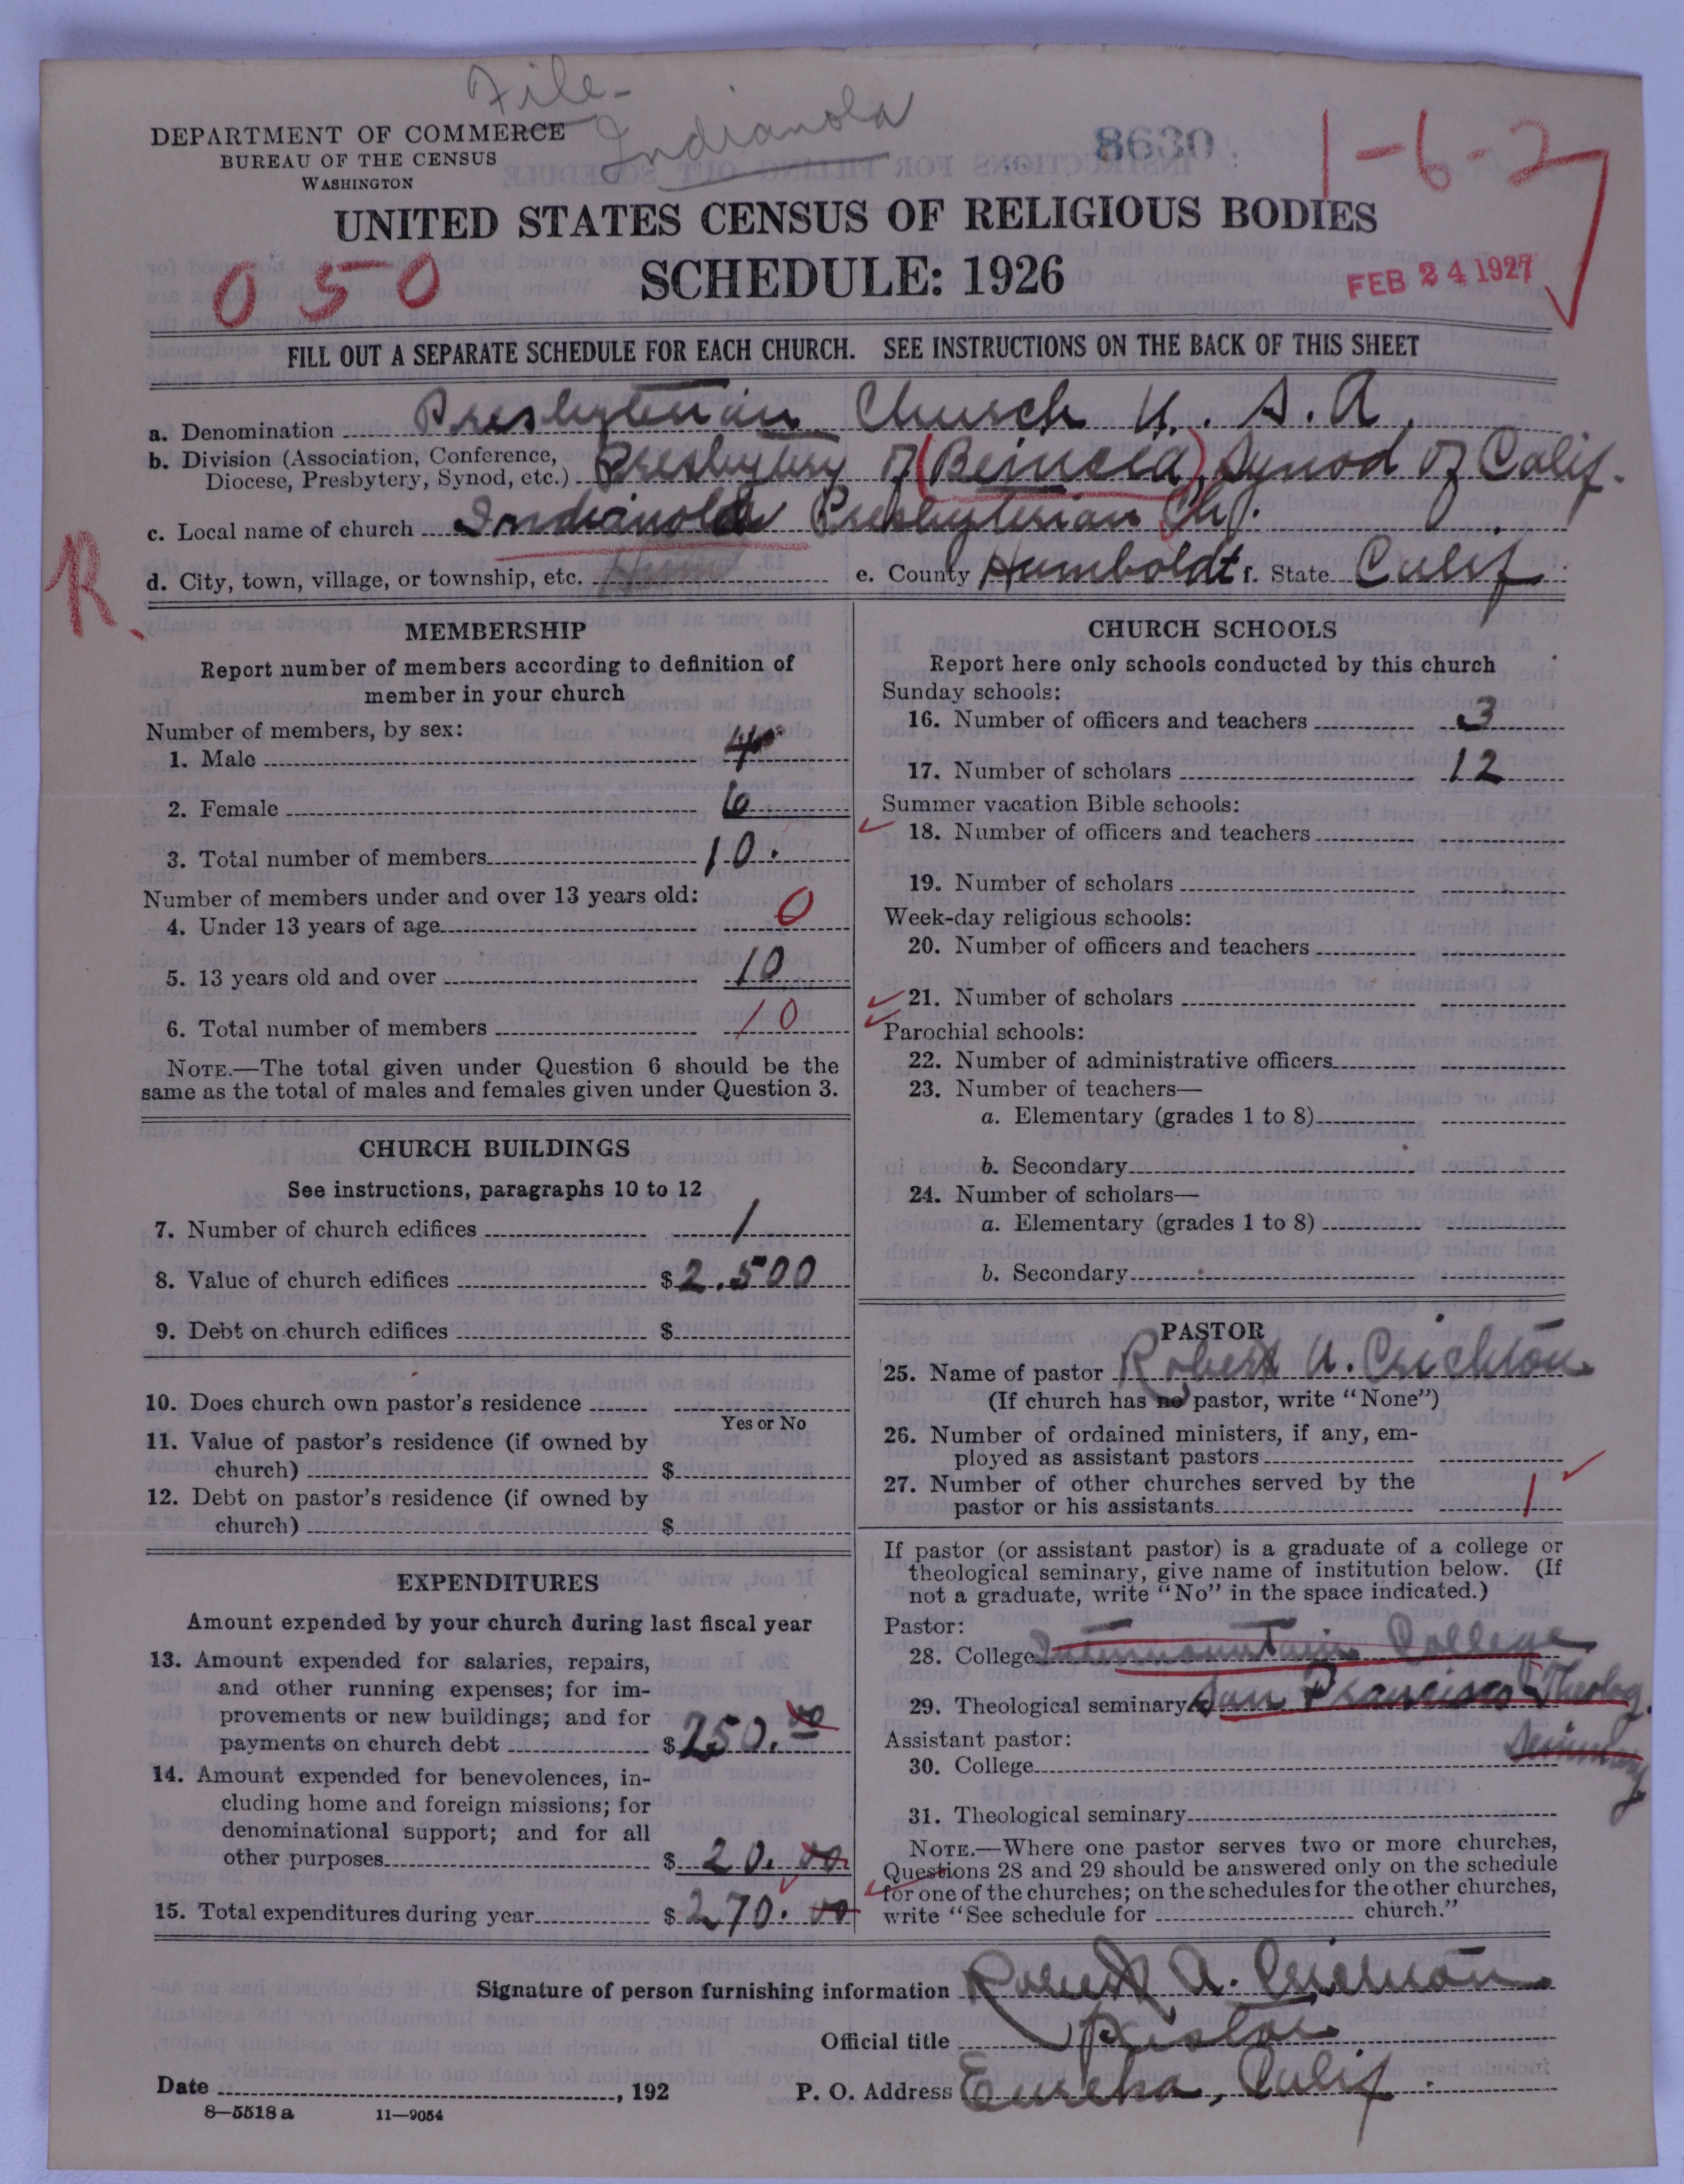 File-
Indianola
DEPARTMENT OF COMMERCE
BUREAU OF THE CENSUS
WASHINGTON
8630
1-6-27
UNITED STATES CENSUS OF RELIGIOUS BODIES
050
SCHEDULE: 1926
FEB 24 1927
FILL OUT A SEPARATE SCHEDULE FOR EACH CHURCH. SEE INSTRUCTIONS ON THE BACK OF THIS SHEET
a. Denomination Presbyterian Church U. S. A.
b. Division (Association, Conference, Diocese, Presbytery, Synod, etc.) Presbytery of (Beincia), Synod of Calif.
c. Local name of church Indianola Presbyterian Ch.
R
d. City, town, village, or township, etc. e. County Humboldt f. State Calif
MEMBERSHIP
Report number of members according to definition of
member in your church
Number of members, by sex:
1. Male 4
2. Female 6
3. Total number of members 10.
Number of members under and over 13 years old:
4. Under 13 years of age 0
5. 13 years old and over 10
6. Total number of members 10
NOTE.—The total given under Question 6 should be the
same as the total of males and females given under Question 3.
CHURCH BUILDINGS
See instructions, paragraphs 10 to 12
7. Number of church edifices 1
8. Value of church edifices $2.500
9. Debt on church edifices $
10. Does church own pastor's residence
Yes or No
11. Value of pastor's residence (if owned by
church) $
12. Debt on pastor's residence (if owned by
church) $
EXPENDITURES
Amount expended by your church during last fiscal year
13. Amount expended for salaries, repairs,
and other running expenses; for im-
provements or new buildings; and for
payments on church debt $250.00
14. Amount expended for benevolences, in-
cluding home and foreign missions; for
denominational support; and for all
other purposes $20.00
15. Total expenditures during year $270.00
CHURCH SCHOOLS
Report here only schools conducted by this church
Sunday schools:
16. Number of officers and teachers 3
17. Number of scholars 12
Summer vacation Bible schools:
18. Number of officers and teachers
19. Number of scholars
Week-day religious schools:
20. Number of officers and teachers
21. Number of scholars
Parochial schools:
22. Number of administrative officers
23. Number of teachers—
a. Elementary (grades 1 to 8)
b. Secondary
24. Number of scholars—
a. Elementary (grades 1 to 8)
b. Secondary
PASTOR
25. Name of pastor Robert A. Crichton
(If church has no pastor, write "None")
26. Number of ordained ministers, if any, em-
ployed as assistant pastors
27. Number of other churches served by the
pastor or his assistants 1
If pastor (or assistant pastor) is a graduate of a college or
theological seminary, give name of institution below. (If
not a graduate, write "No" in the space indicated.)
Pastor:
28. College Intermountain College
29. Theological seminary San Francisco Theolog.
Seminary
Assistant pastor:
30. College
31. Theological seminary
NOTE.—Where one pastor serves two or more churches,
Questions 28 and 29 should be answered only on the schedule
for one of the churches; on the schedules for the other churches,
write "See schedule for church."
Signature of person furnishing information Robert A. Crichton
Official title Pastor
Date , 192 P. O. Address Eureka, Calif.
8—5518a 11—9054